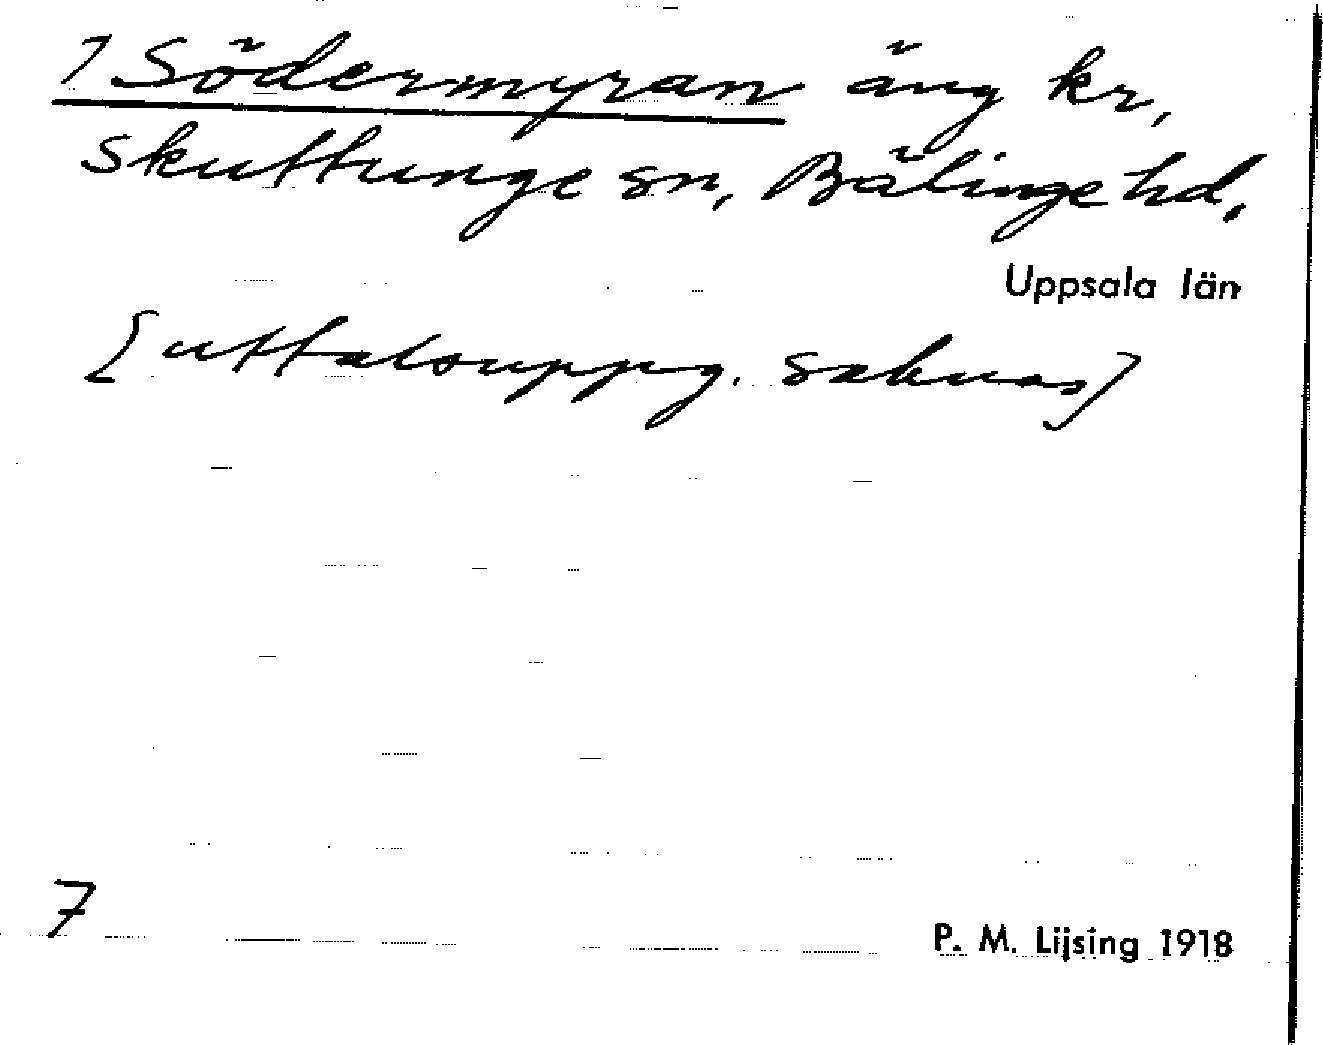 7 Södermyran äng kr,
Skuttunge sn, Bälinge hd,
Uppsala län
[uttalsuppg. saknas]
7
P. M. Lijsing 1918